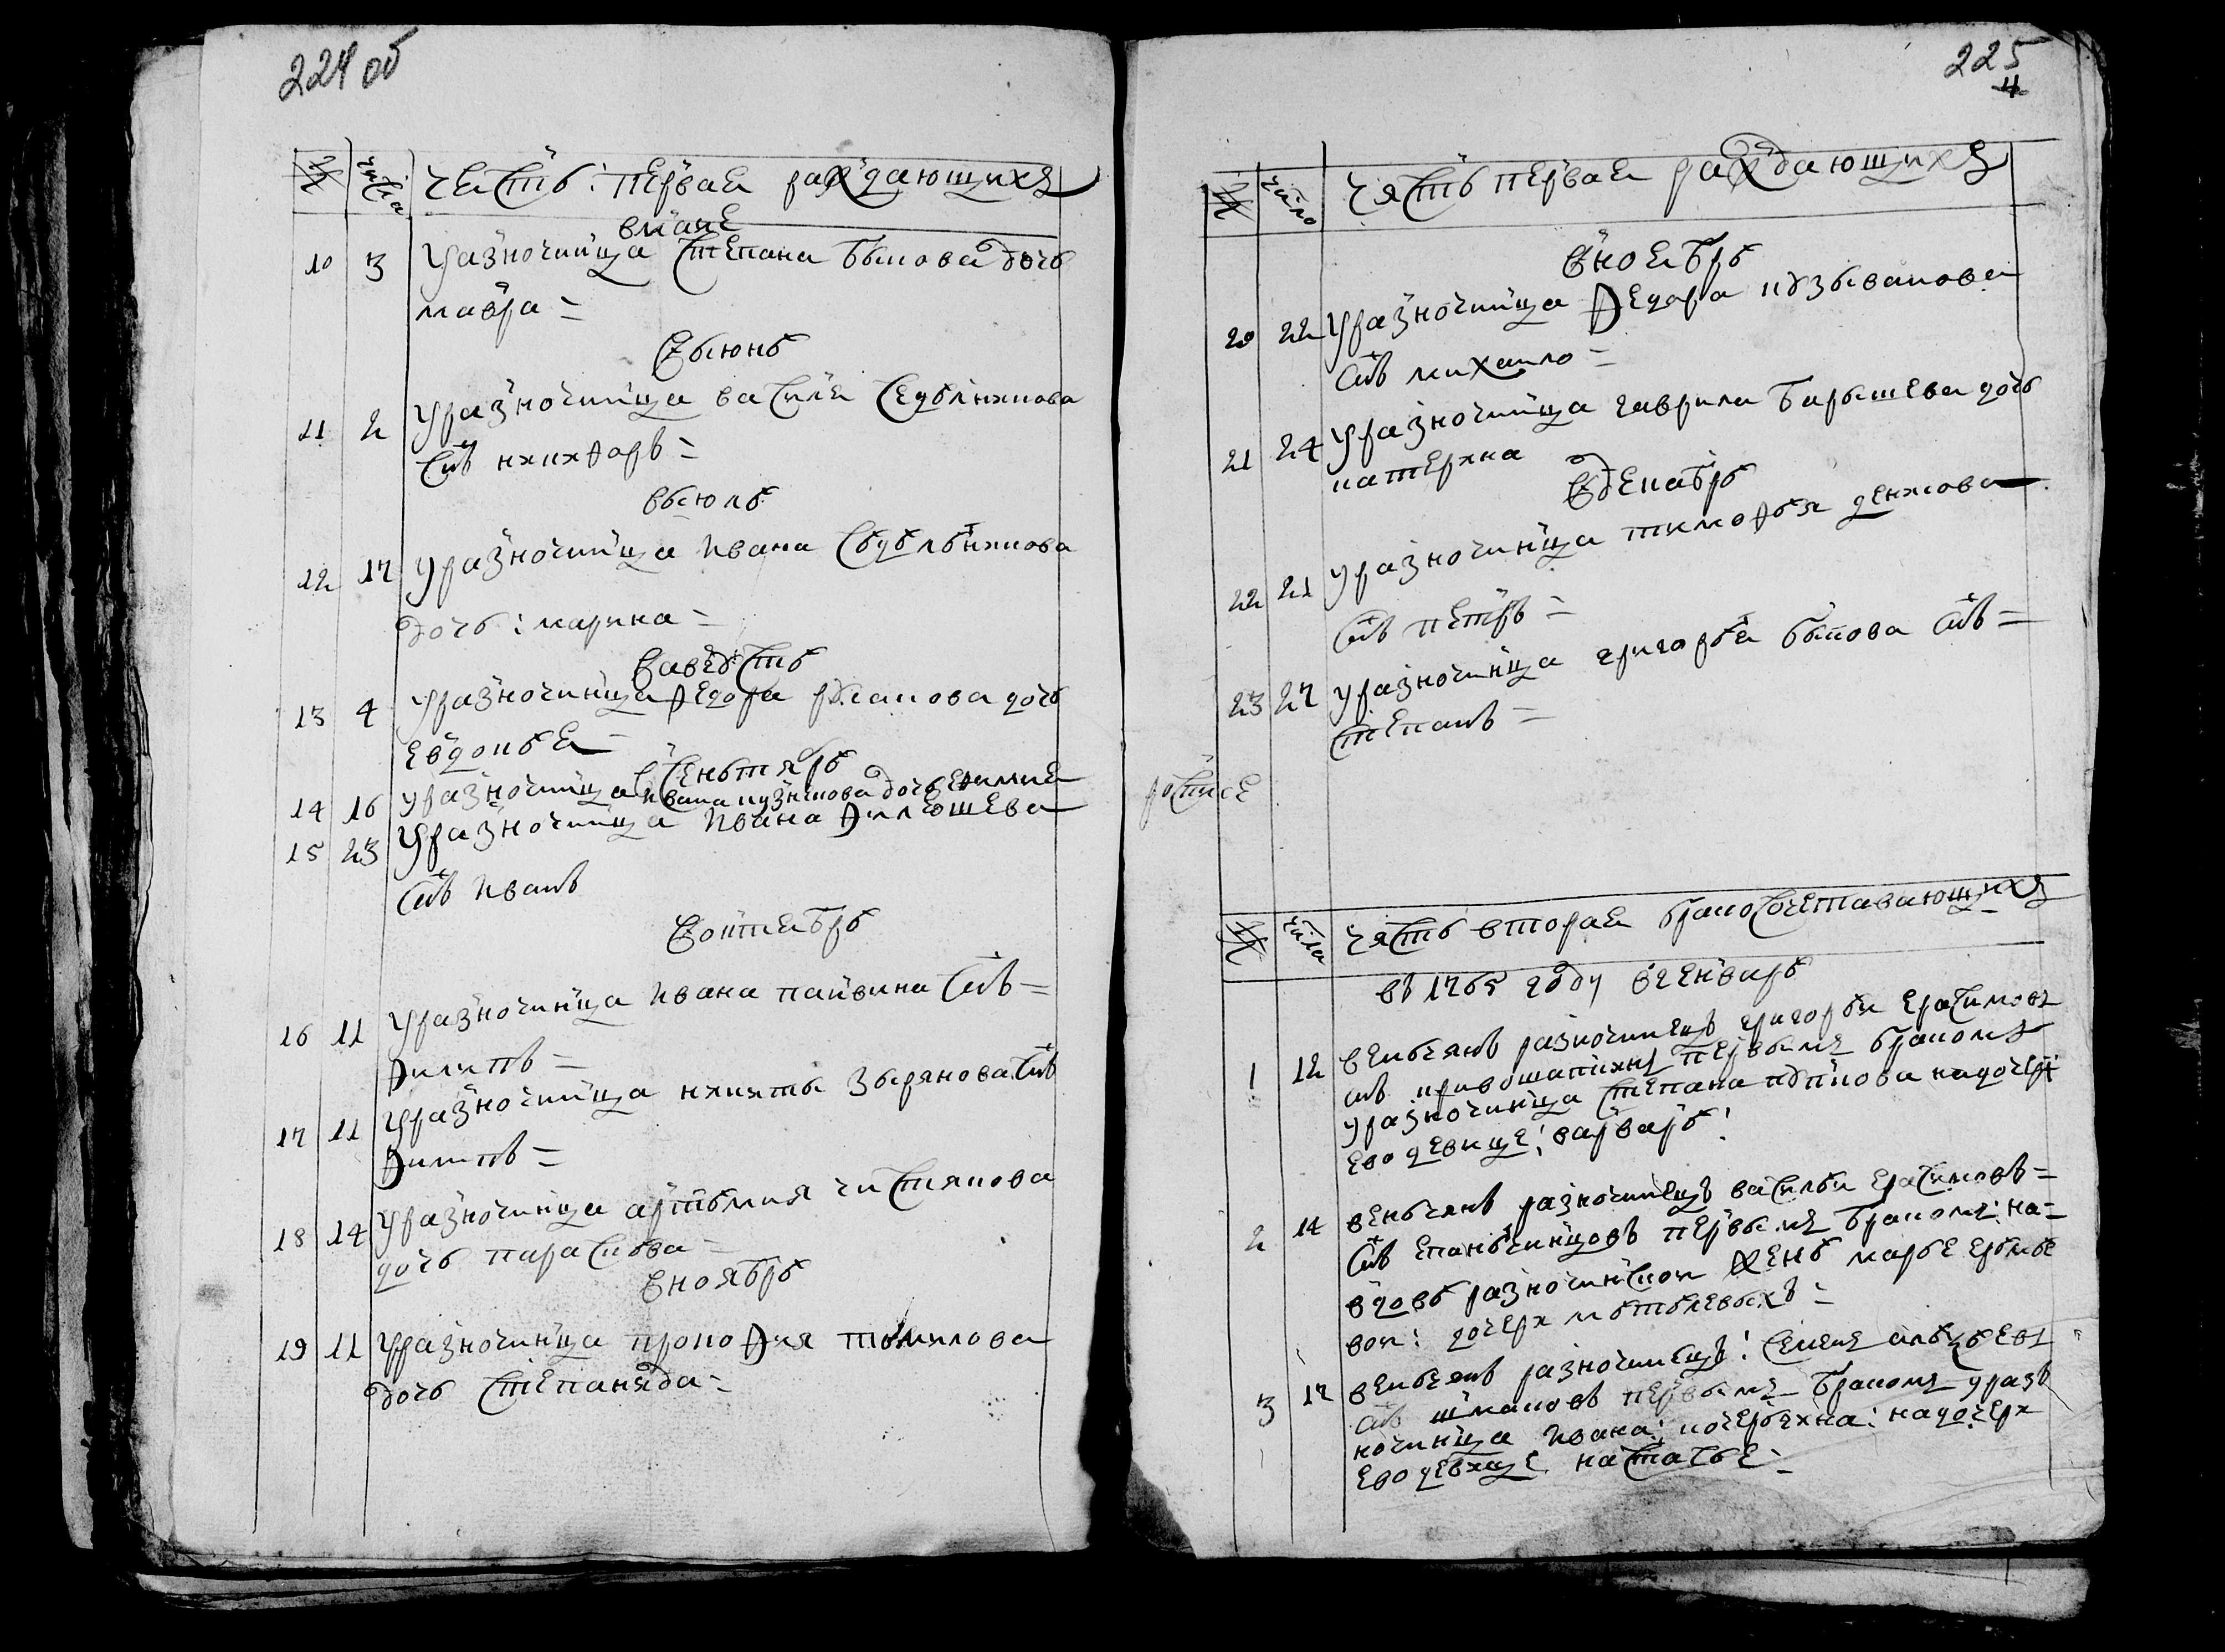 224 об
№ числа часть: первая раждающихъ
вмаие
10 3 Уразночинца степана быкова дочь
мавра =
Въиюнь
11 2 Уразночинца василя седельникова
снъ никифоръ =
въиюль
12 17 Уразночинца ивана седельникова
дочь: марина =
вавгусть
13 4 Уразночинца федора дочь
евдокья =
всеньтябрь
14 16 уразночинца ивана кузнецова дочь ефимия
15 23 Уразночинца ивана филюшева
снъ иванъ
воктябрь
16 11 Уразночинца ивана пайвина снъ =
филипъ =
17 11 Уразночинца никиты зырянова снъ
филипъ =
18 14 Уразночинца артемия чистякова
дочь параскова =
вноябрь
19 11 Уразночинца прокофия томилова
дочь степанида =
225
4
№ число часть первая раждающихъ
вноябрь
20 22 Уразночинца федора кузыванова
снъ михаило =
21 24 Уразночинца гаврила барышева дочь
катерина
вдекабрь
22 21 уразночинца тимофья денисова
снъ петръ =
23 27 уразночинца григорья быкова снъ =
степанъ =
№ числа часть вторая бракосочетавающихъ
въ 1765 году вгенварь
1 12 веньчанъ разночинецъ григорьи ерасимовъ
снъ кривошапкинъ первымъ бракомъ
уразночинца степана надочери
ево девице: варварь:
2 14 веньчанъ разночинецъ василья ерасимовъ =
снъ епаньчинцовъ первымъ бракомъ: на =
вдовь разночинской жень марье
вои: дочери
3 17 веньчанъ разночинецъ: семенъ
снъ шмаковъ первымъ бракомъ уразъ
ночинца ивана: надочери
ево девице настасье =